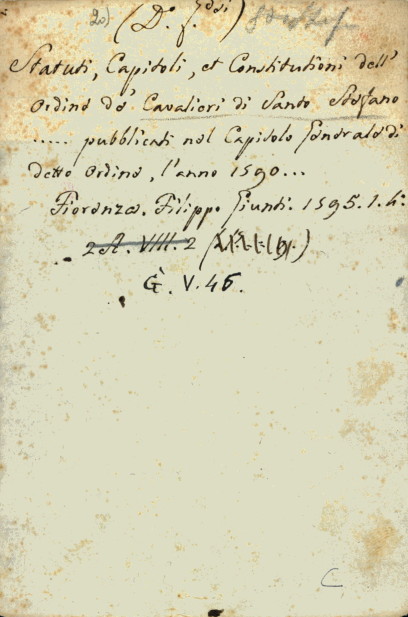 2) (Do. f.
Statuti, Capitoli, et Constitutioni dell'
Ordine de' Cavalieri di Santo Stefano
..... pubblicati nel Capitolo Generale di
detto Ordine, l'anno 1590...
Fiorenza. Filippo Giunti. 1595. 1. 4:
2 A. VIII. 2
G. V. 46.
C